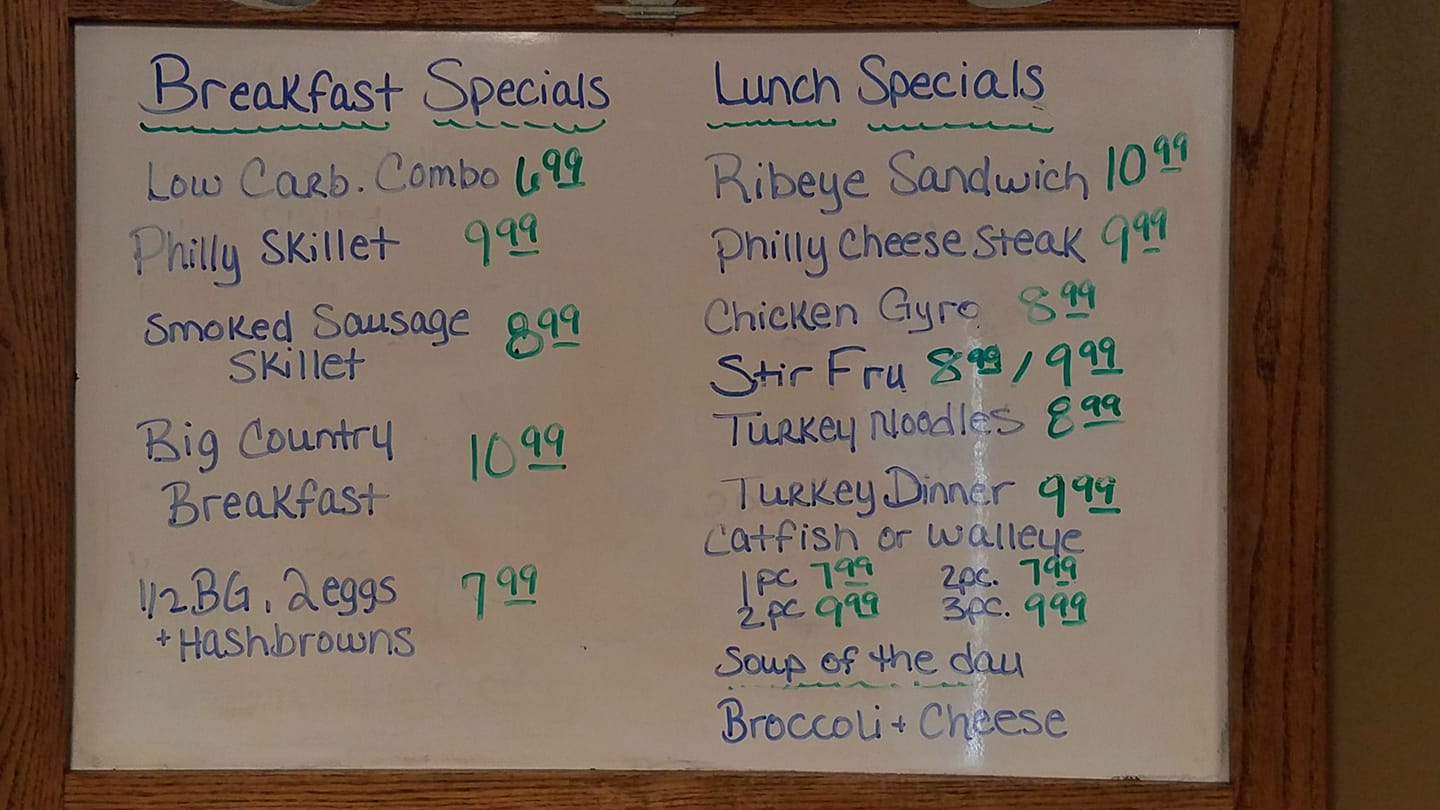 Breakfast Specials
Low Carb. Combo 6.99
Philly Skillet 9.99
Smoked Sausage 8.99
Skillet
Big Country 10.99
Breakfast
1/2 BG, 2 eggs 7.99
+ Hashbrowns
Lunch Specials
Ribeye Sandwich 10.99
Philly Cheese Steak 9.99
Chicken Gyro 8.99
Stir Fry 8.99 / 9.99
Turkey Noodles 8.99
Turkey Dinner 9.99
Catfish or Walleye
1pc 7.99 2pc. 7.99
2pc 9.99 3pc. 9.99
Soup of the day
Broccoli + Cheese